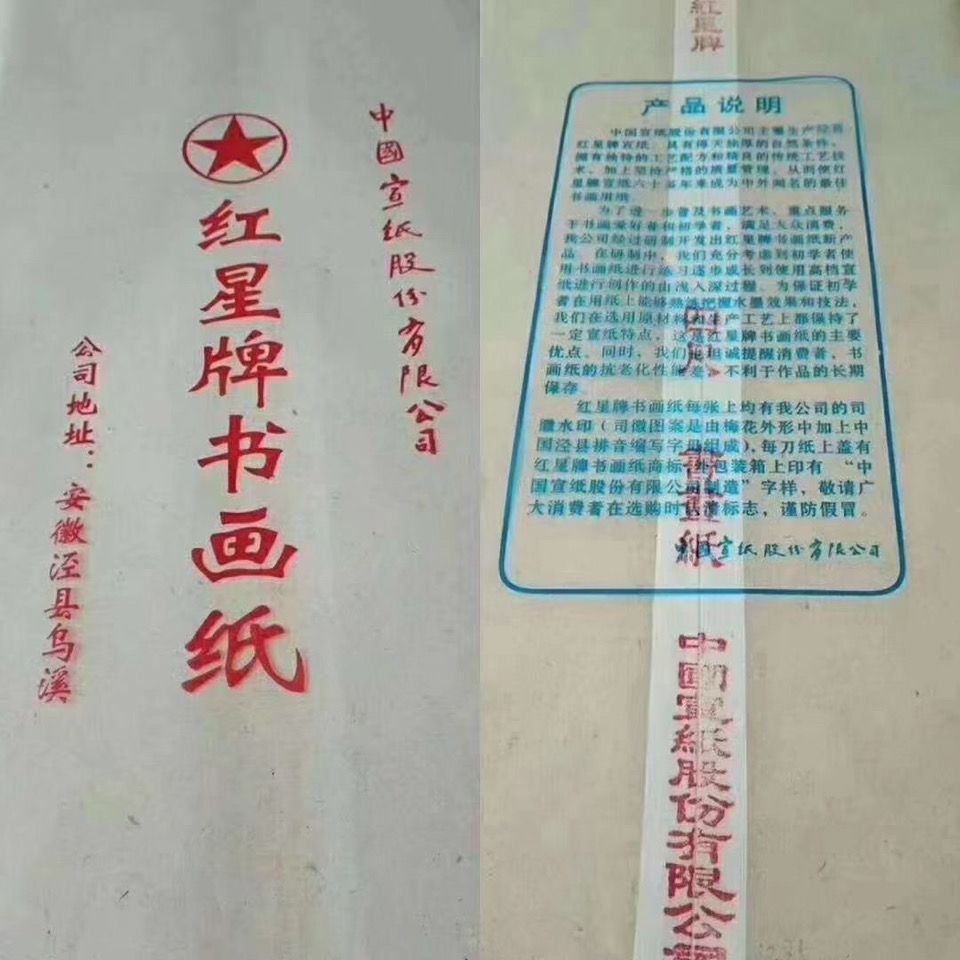 中國宣紙股份有限公司
红星牌书画纸
公司地址：安徽泾县乌溪
紅星牌
产品说明
中国宣纸股份有限公司主要生产经营
红星牌宣纸，具有得天独厚的自然条件，
拥有独特的工艺配方和精良的传统工艺技
术，加上坚持严格的质量管理，从而使红
星牌宣纸六十多年来成为中外闻名的最佳
书画用纸。
为了进一步普及书画艺术，重点服务
于书画爱好者和初学者，满足大众消费，
我公司经过研制开发出红星牌书画纸新产
品。在研制中，我们充分考虑到初学者使
用书画纸进行练习逐步成长到使用高档宣
纸进行创作的由浅入深过程。为保证初学
者在用纸上能够熟练把握水墨效果和技法，
我们在选用原材料和生产工艺上都保持了
一定宣纸特点，这是红星牌书画纸的主要
优点。同时，我们也坦诚提醒消费者，书
画纸的抗老化性能差，不利于作品的长期
保存。
红星牌书画纸每张上均有我公司的司
徽水印（司徽图案是由梅花外形中加上中
国泾县拼音缩写字母组成），每刀纸上盖有
红星牌书画纸商标，外包装箱上印有“中
国宣纸股份有限公司制造”字样，敬请广
大消费者在选购时认清标志，谨防假冒。
中國宣紙股份有限公司
紙
中國宣紙股份有限公司